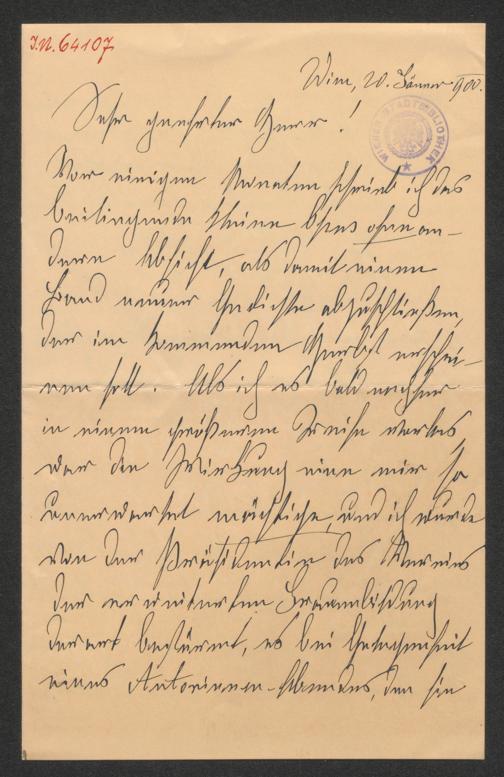 I.N. 64107
Wien, 20. Jänner 900.
WIENER STADTBIBLIOTHEK
Sehr geehrter Herr!
Vor einigen Monaten schrieb ich das
beiliegende kleine Opus ohne an-
dere Absicht, als damit einen
Band neuer Gedichte abzuschließen,
der im kommenden Herbst erschei-
nen soll. Als ich es bald nachher
in einem größeren Kreise vorlas
war die Wirkung eine mir so
unerwartet mächtige, und ich wurde
von der Präsidentin des Vereins
der erweiterten Frauenbildung
derart bestürmt, es bei Gelegenheit
eines Autorinnen-Abendes, den sie